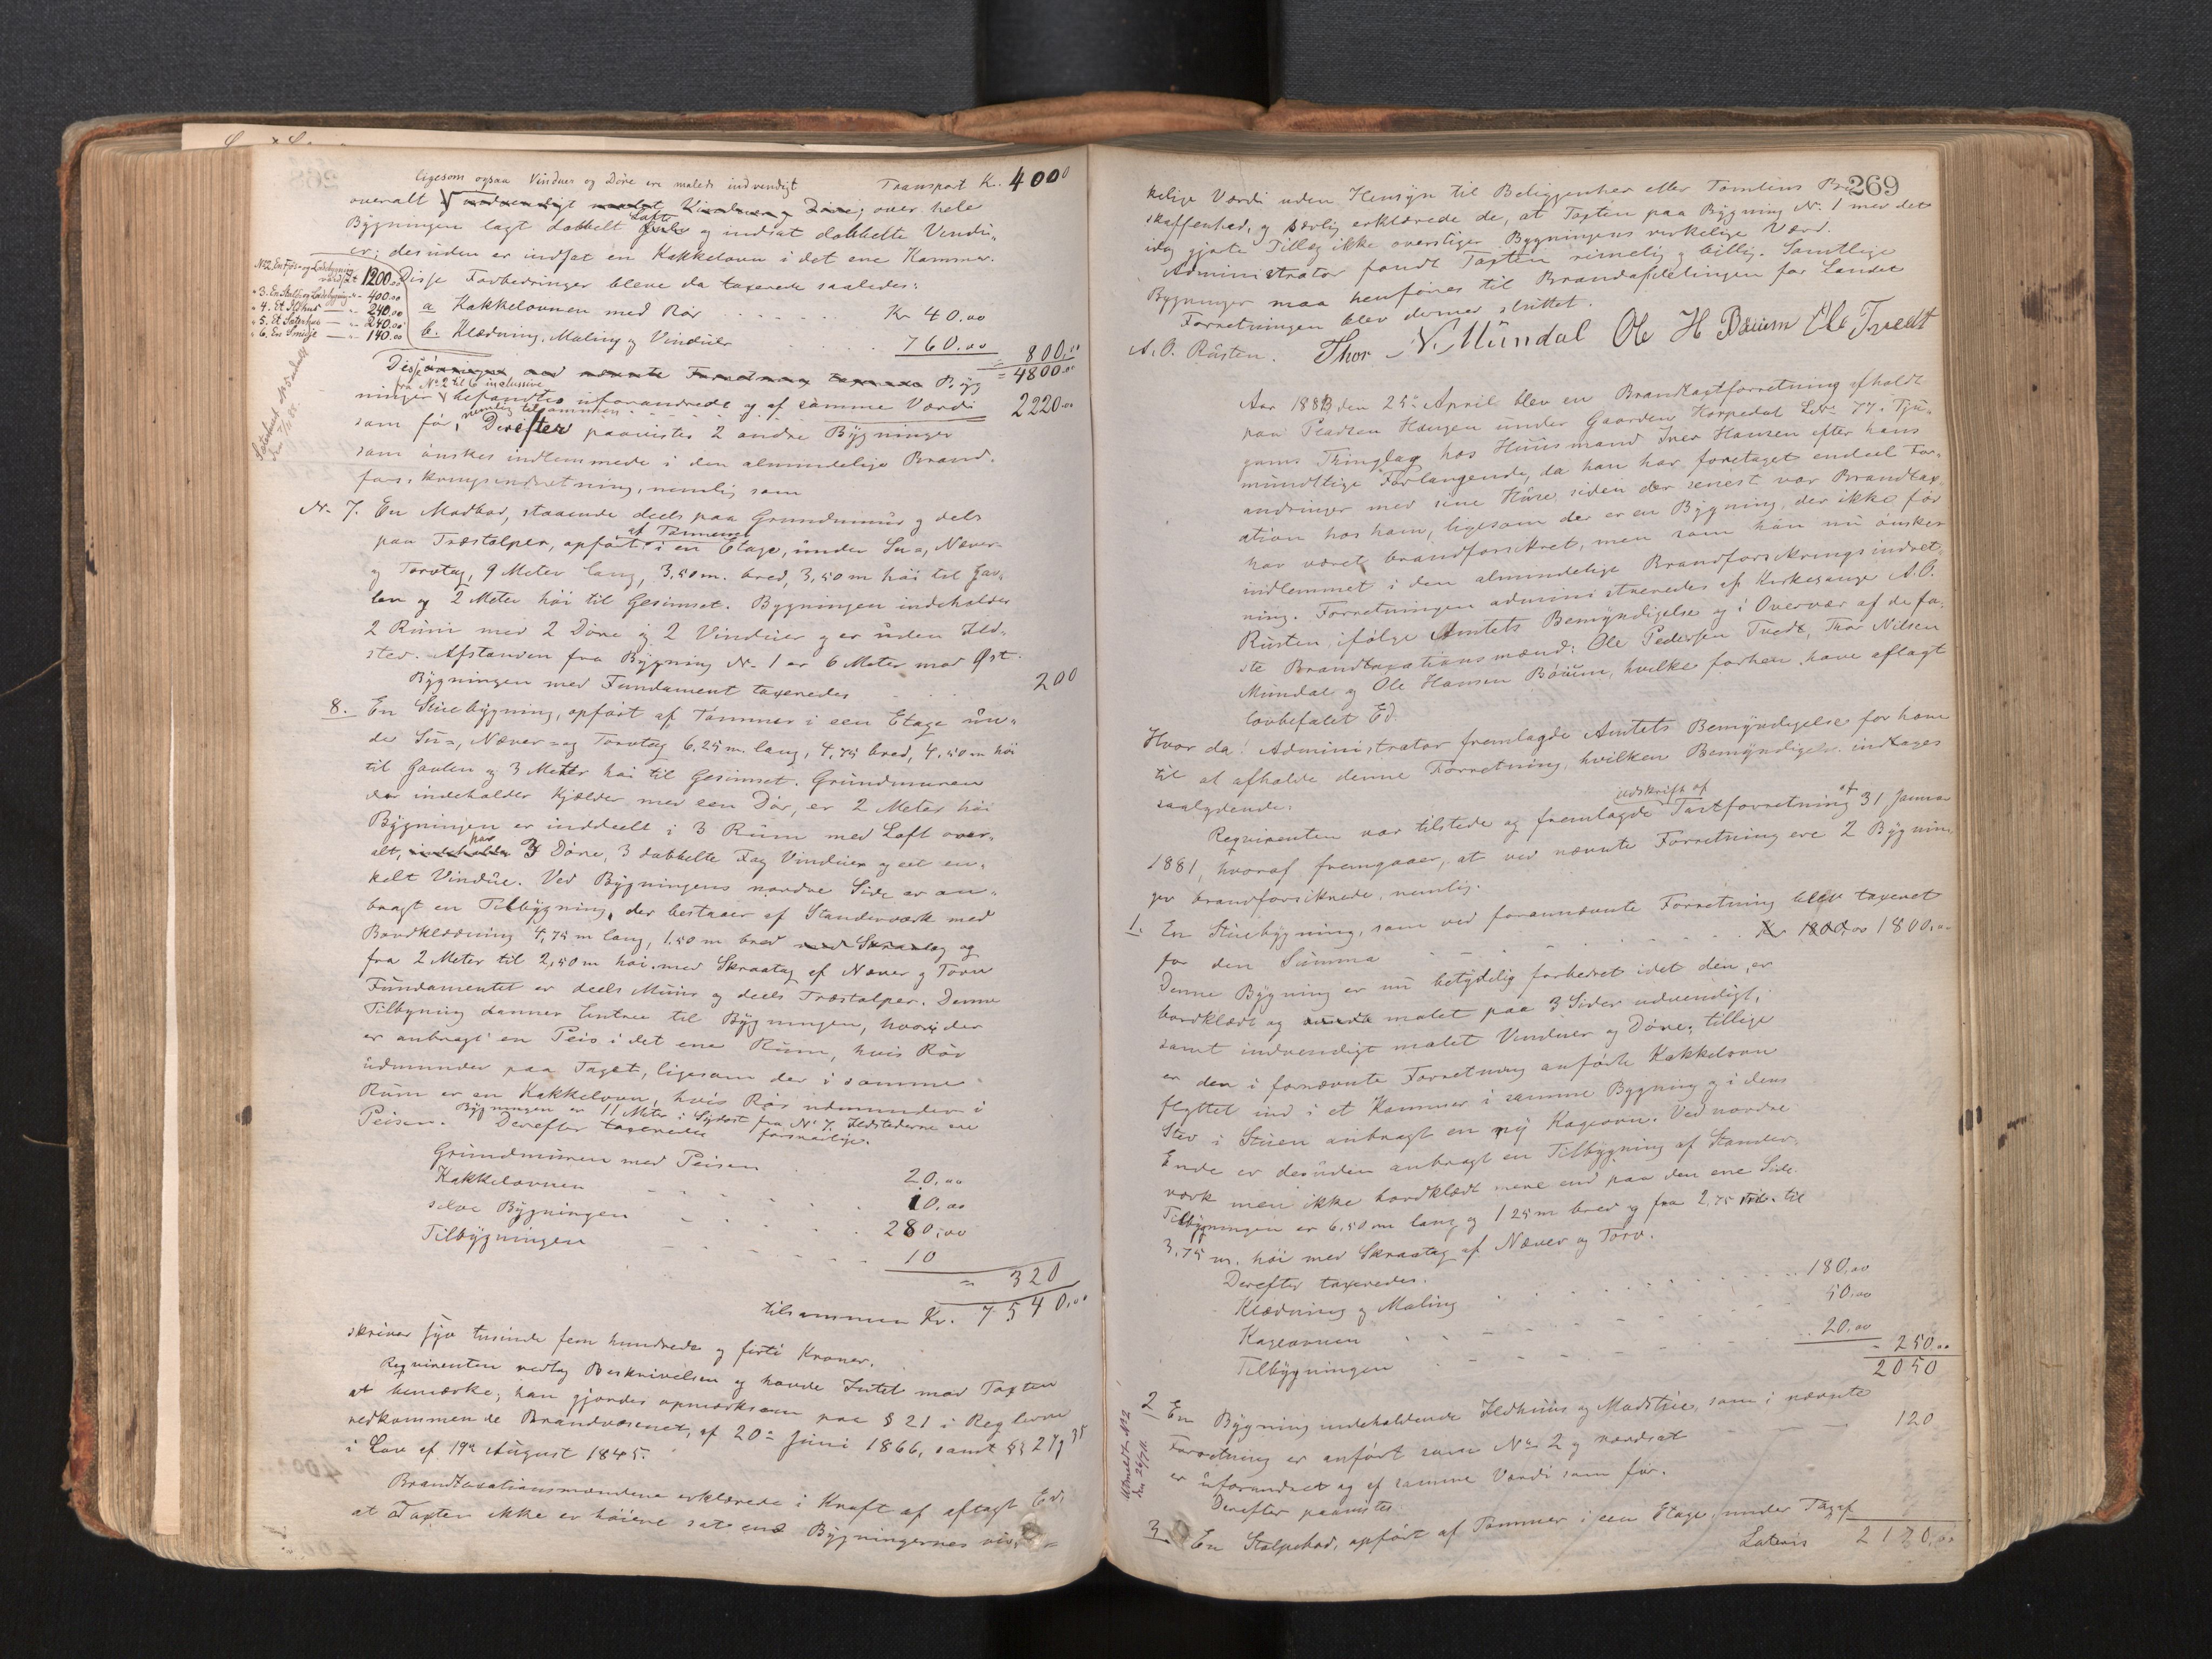 ligesom ogsaa Vinduer og Døre ere malede indvendigt Transport Kr. 4000
overalt indvendigt malet Vinduer og Døre; over hele
Bygningen lagt dobbelt Lofte og indsat dobbelte Vindu-
er; desuden er indsat en Kakkelovn i det ene Kammer.
No 2. En Fjøs- og Ladebygning værdsat 1200.00
" 3. En Stald- og Ladebygning - 400.00
" 4. Et Ildhus — " 240.00
" 5. Et Sæterhus — " 240.00
" 6. En Smidje — " 140.00
Sæterhuset No 5 udmeldt
den 7/1 85.
Disse Forbedringer bleve da taxerede saaledes:
a Kakkelovnen med Rør Kr 40.00
b. Klædning, Maling og Vinduer 760.00
= 800.00
= 4800.00
Disse Byg
fra No 2 til 6 inclusive
ninger befandtes uforandrede og af samme Værdi 2220.00
nemlig tilsammen
som før, Derefter paavistes 2 andre Bygninger
som ønskes indlemmede i den almindelige Brand-
forsikringsindretning, nemlig som
No 7. En Madbod, staaende deels paa Grundmuur og dels
af Tømmer
paa Træstolper, opført i en Etage, under Su-, Næver-
og Torvtag, 9 Meter lang, 3,50 m. bred, 3,50 m høi til Gav-
len og 2 Meter høi til Gesimset. Bygningen indeholder
2 Rum med 2 Døre og 2 Vinduer og er uden Ild-
sted. Afstanden fra Bygning No 1 er 6 Meter mod Øst.
Bygningen med Fundament taxeredes 200
8. En Stuebygning, opført af Tømmer i een Etage un-
der Su-, Næver- og Torvtag 6.25 m. lang, 4,75 bred, 4,50 m høi
til Gavlen og 3 Meter høi til Gesimset. Grundmuren
der indeholder Kjælder med een Dør, er 2 Meter høi
Bygningen er inddeelt i 3 Rum med Loft over-
alt, indeholder har 3 Døre, 3 dobbelte Fag Vinduer og eet en-
kelt Vindue. Ved Bygningens nordre Side er an-
bragt en Tilbygning, der bestaaer af Standerværk med
Bordklædning 4,75 m lang, 1.50 m bred med Skraatag og
fra 2 Meter til 2,50 m høi, med Skraatag af Næver og Torv
Fundamentet er deels Muur og deels Træstolper. Denne
Tilbygning danner Entree til Bygningen, hvori der
er anbragt en Peis i det ene Rum, hvis Rør
udmunder paa Taget, ligesom der i samme
Rum er en Kakkelovn, hvis Rør udmunder i
Peisen. Bygningen er 11 Meter i Sydost fra No 7. Ildstederne ere
Derefter taxeredes forsvarlige.
Grundmuren med Peisen 20.00
Kakkelovnen 10.00
selve Bygningen 280.00
Tilbygningen 10
= 320
tilsammen Kr. 7540.00
skriver syv tusinde fem hundrede og førti Kroner.
Requirenten vedtog Beskrivelsen og havde Intet mod Taxten
at bemærke; han gjordes opmærksom paa § 21 i Reglerne
vedkommende Brandvæsenet, af 20de Juni 1866, samt §§ 27 og 35
i Lov af 19de August 1845.
Brandtaxationsmændene erklærede i Kraft af aflagt Ed,
at Taxten ikke er høiere sat end Bygningernes vir-
269
kelige Værdi uden Hensyn til Beliggenhed eller Tomtens Be-
skaffenhed, og særlig erklærede de, at Taxten paa Bygning No 1 med det
idag gjorte Tillæg ikke overstiger Bygningens virkelige Værd.
Administrator fandt Taxten rimelig og billig. Samtlige
Bygninger maa henføres til Brandafdelingen for Landet
Forretningen blev dermed sluttet.
A. O. Rusten. Thor N. Mundal Ole H Bøium Ole Tvedt
Aar 1883 den 25de April blev en Brandtaxtforretning afholdt
paa Pladsen Haugen under Gaarden Korpedal Lbr 77 i Tju-
gums Thinglag hos Huusmand Iver Hansen efter hans
mundtlige Forlangende, da han har foretaget endeel For-
andringer med sine Huse, siden der senest var Brandtax-
ation hos ham, ligesom der er en Bygning, der ikke før
har været brandforsikret, men som han nu ønsker
indlemmet i den almindelige Brandforsikringsindret-
ning. Forretningen administreredes af Kirkesanger A. O.
Rusten, ifølge Amtets Bemyndigelse og i Overvær af de fa-
ste Brandtaxationsmænd: Ole Pedersen Tvedt, Thor Nilsen
Mundal og Ole Hansen Bøium, hvilke forhen have aflagt
lovbefalet Ed.
Hvor da: Administrator fremlagde Amtets Bemyndigelse for ham
til at afholde denne Forretning, hvilken Bemyndigelse indtages
saalydende:
Requirenten var tilstede og fremlagde udskrift af Taxtforretning af 31 Januar
1881, hvoraf fremgaaer, at ved nævnte Forretning ere 2 Bygnin-
ger brandforsikrede, nemlig:
1. En Stuebygning, som ved forannævnte Forretning blev taxeret
for den Summa Kr 1800.00 1800.00
Denne Bygning er nu betydelig forbedret idet den er
bordklædt og malet paa 3 Sider udvendigt,
samt indvendigt malet Vinduer og Døre; tillige
er den i fornævnte Forretning anførte Kakkelovn
flyttet ind i et Kammer i samme Bygning og i dens
Sted i Stuen anbragt en ny Kageovn. Ved nordre
Ende er desuden anbragt en Tilbygning af Stander-
værk men ikke bordklædt mere end paa den ene Side.
Tilbygningen er 6,50 m lang og 1 25 m bred og fra 2,75 m. til
3,75 m. høi med Skraatag af Næver og Torv.
Derefter taxeredes.
Klædning og Maling 180.00
Kageovnen 50.00
Tilbygningen 20.00
= 250.00
2050
Utmeldt No 2
den 26/7 11.
2 En Bygning indeholdende Ildhuus og Madstue, som i nævnte
Forretning er anført som No 2 og værdsat 120
er uforandret og af samme Værdi som før.
Derefter paavistes
3 En Stolpebod, opført af Tømmer i een Etage, under Tag af
Lateris 2170.00